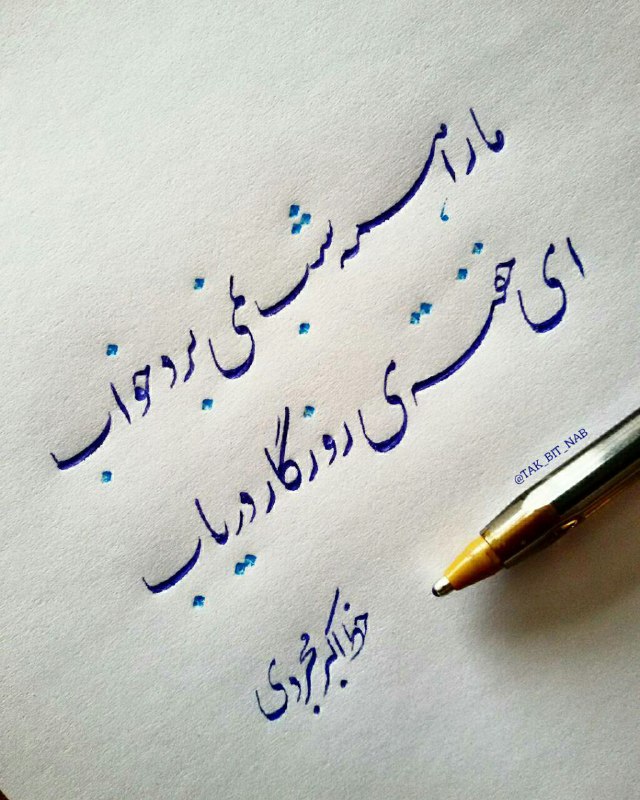 ما را همه شب نمی برد خواب
ای خفته ی روزگار دریاب
@TAK_BIT_NAB
خط اکبر مجردی